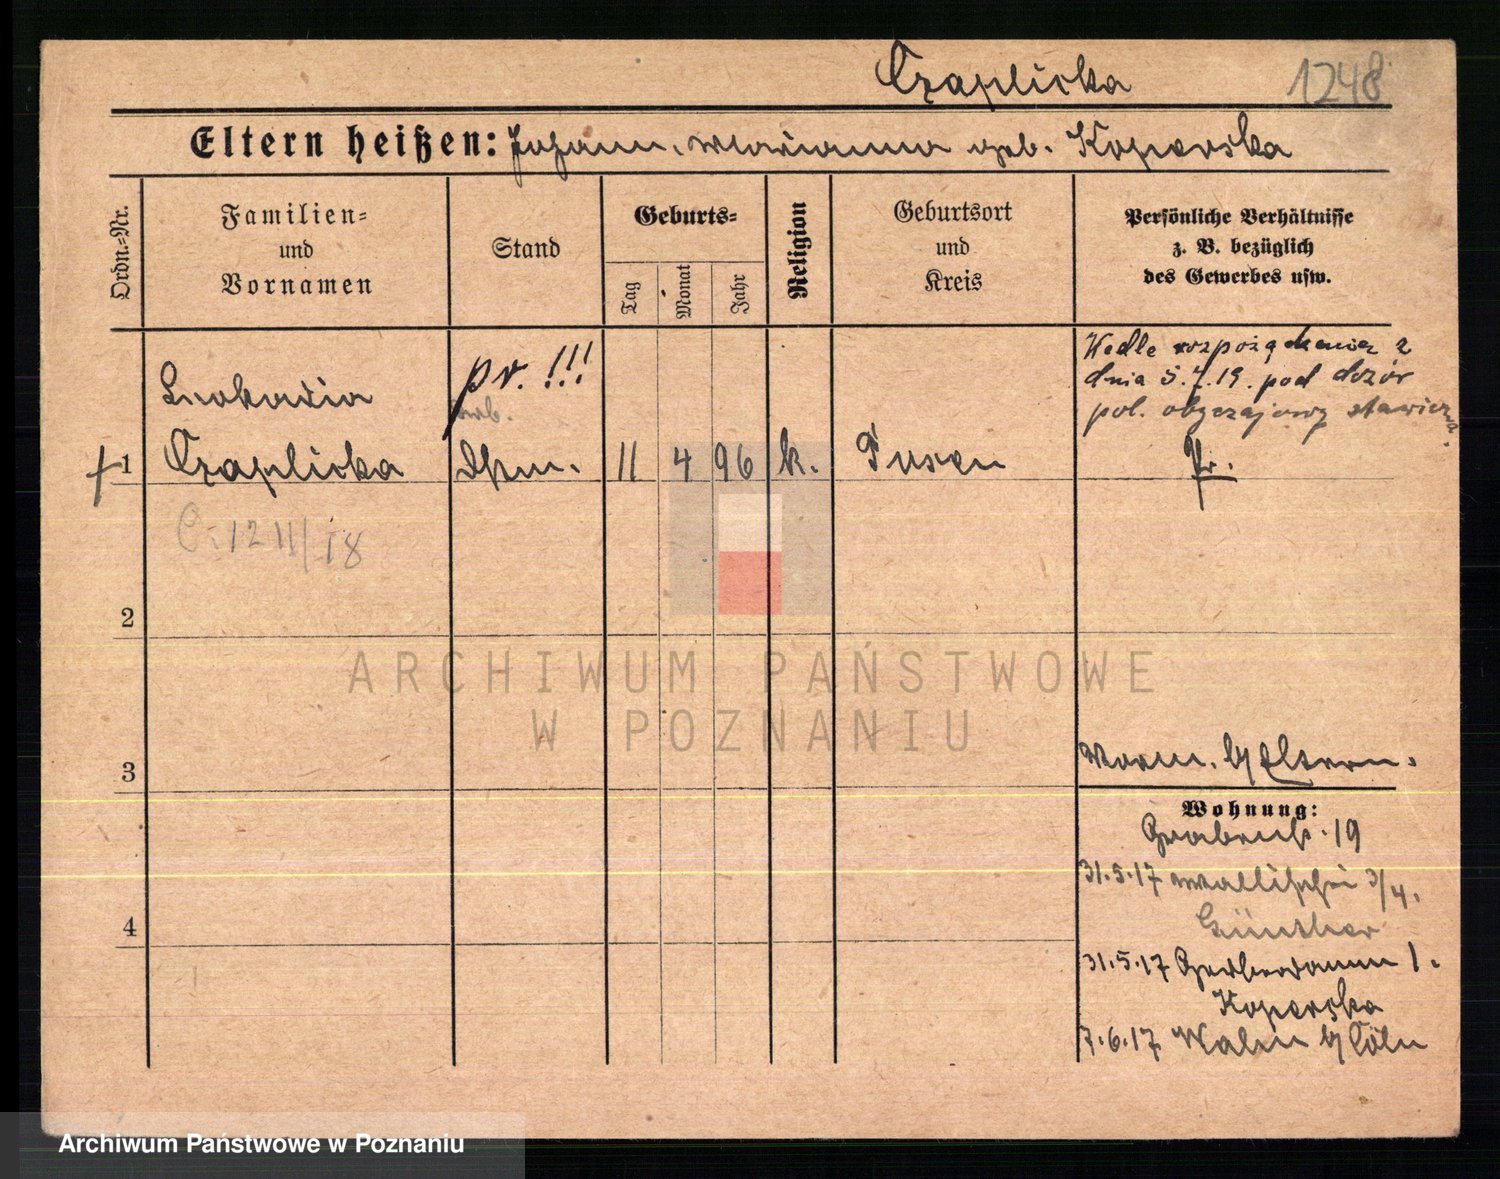 Czaplicka 1248
Eltern heißen: Johann, Marianna geb. Koperska
Ordn.=Nr.
Familien=
und
Vornamen
Stand
Geburts=
Tag
Monat
Jahr
Religion
Geburtsort
und
Kreis
Persönliche Verhältnisse
z. B. bezüglich
des Gewerbes usw.
pr. !!!
Wedle rozporządzenia z
dnia 5.7.19. pod dozór
pol. obyczajowy stawiona.
Leokadia
1 Czaplicka
11 4 96 k. Pr.
C. 12 11/18
2
3
Vorm. b/ Eltern.
Wohnung:
Grabenstr. 19
31.5.17 Wallischei 3/4.
Günther
31.5.17 Gerberdamm 1.
Koperska
7.6.17 Wahn b/ Cöln
4
ARCHIWUM PAŃSTWOWE
W POZNANIU
Archiwum Państwowe w Poznaniu